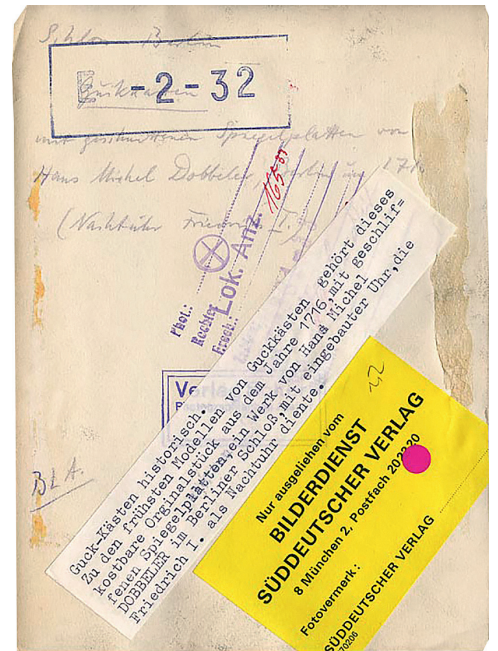 Schloss Berlin
E -2-32
Guckkasten
mit geschnittenen Spiegelplatten von
Hans Michel Dobbeler, Berlin um 1716
(Nachtuhr Friedr. I.
1165 83
Phot.:
Rechte
Ersch.: Lok. Anz.
Verla
BLA.
Guck-Kästen historisch.
Zu den frühsten Modellen von Guckkästen gehört dieses
kostbare Orginalstück aus dem Jahre 1716, mit geschlif=
fenen Spiegelplatten, ein Werk von Hans Michel
DOBBELER im Berliner Schloß, mit eingebauter Uhr, die
Friedrich I. als Nachtuhr diente.
Nur ausgeliehen vom
BILDERDIENST
SÜDDEUTSCHER VERLAG
8 München 2, Postfach 20 20
Fotovermerk:
SÜDDEUTSCHER VERLAG
70206